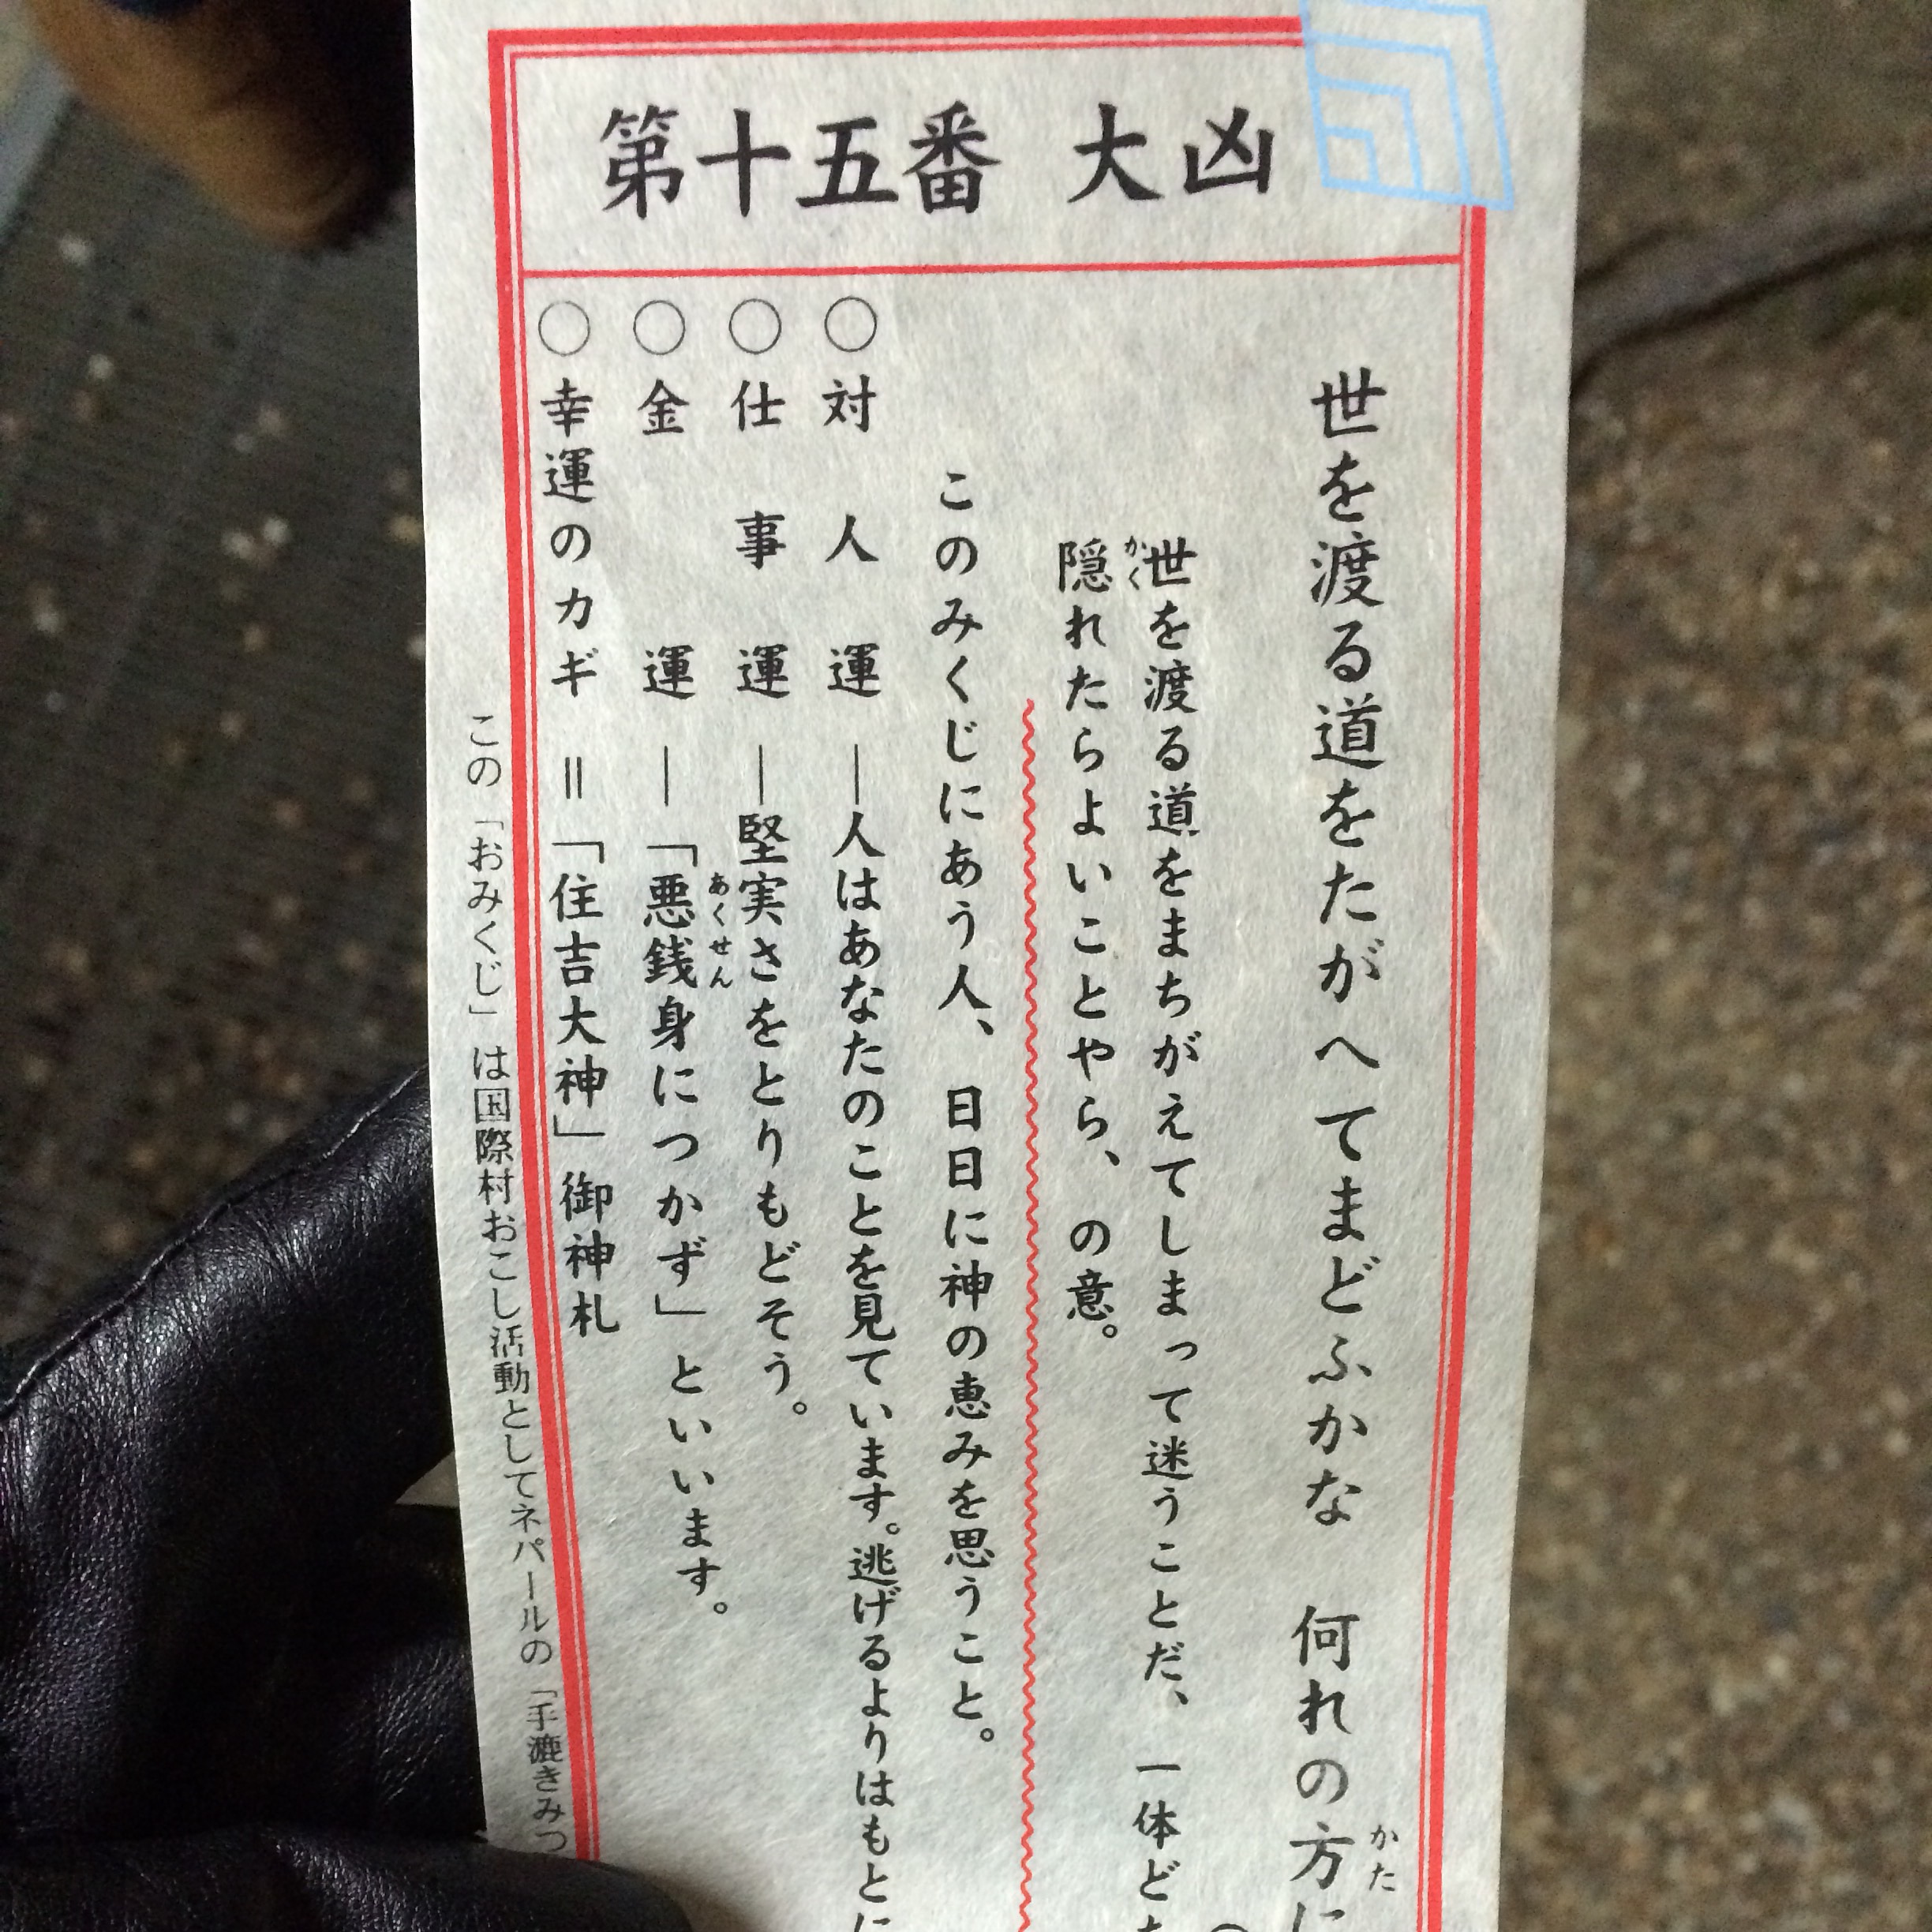 第十五番 大凶
世を渡る道をたがへてまどふかな 何れの方に
かた
世を渡る道をまちがえてしまって迷うことだ、一体ど
隠れたらよいことやら、の意。
かく
このみくじにあう人、日日に神の恵みを思うこと。
○対人運―人はあなたのことを見ています。逃げるよりはもとに
○仕事運―堅実さをとりもどそう。
○金運―「悪銭身につかず」といいます。
あくせん
○幸運のカギ＝「住吉大神」御神札
この「おみくじ」は国際村おこし活動としてネパールの「手漉きみつ